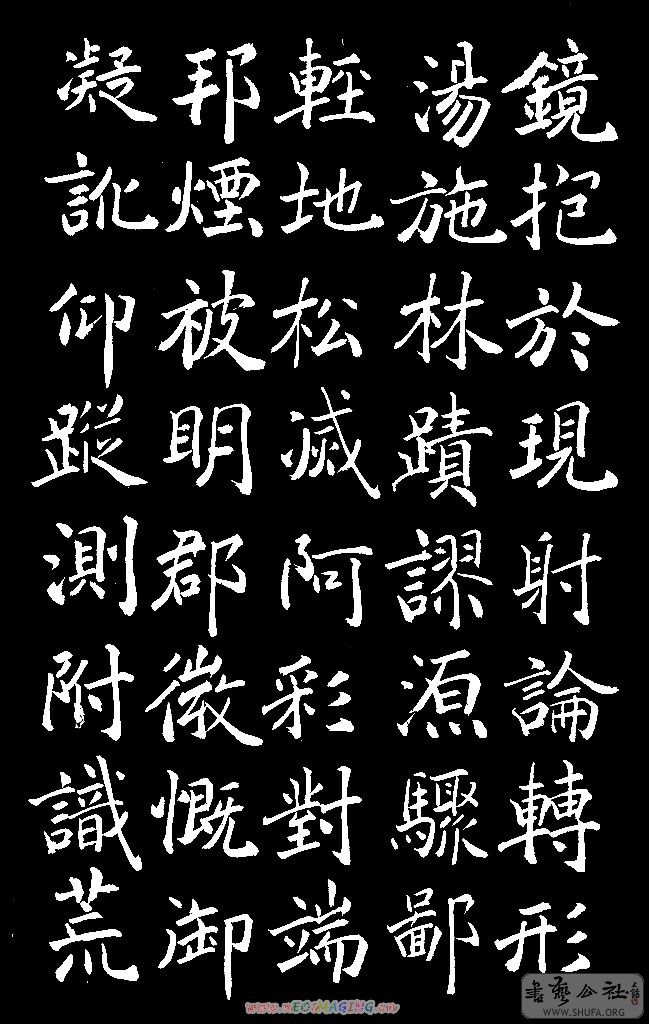 鏡抱於現射論轉形
湯施林蹟謬源驟鄙
輕地松滅阿彩對端
邦煙被明郡微慨御
凝訛仰蹤測附識荒
書藝公社
WWW.SHUFA.ORG